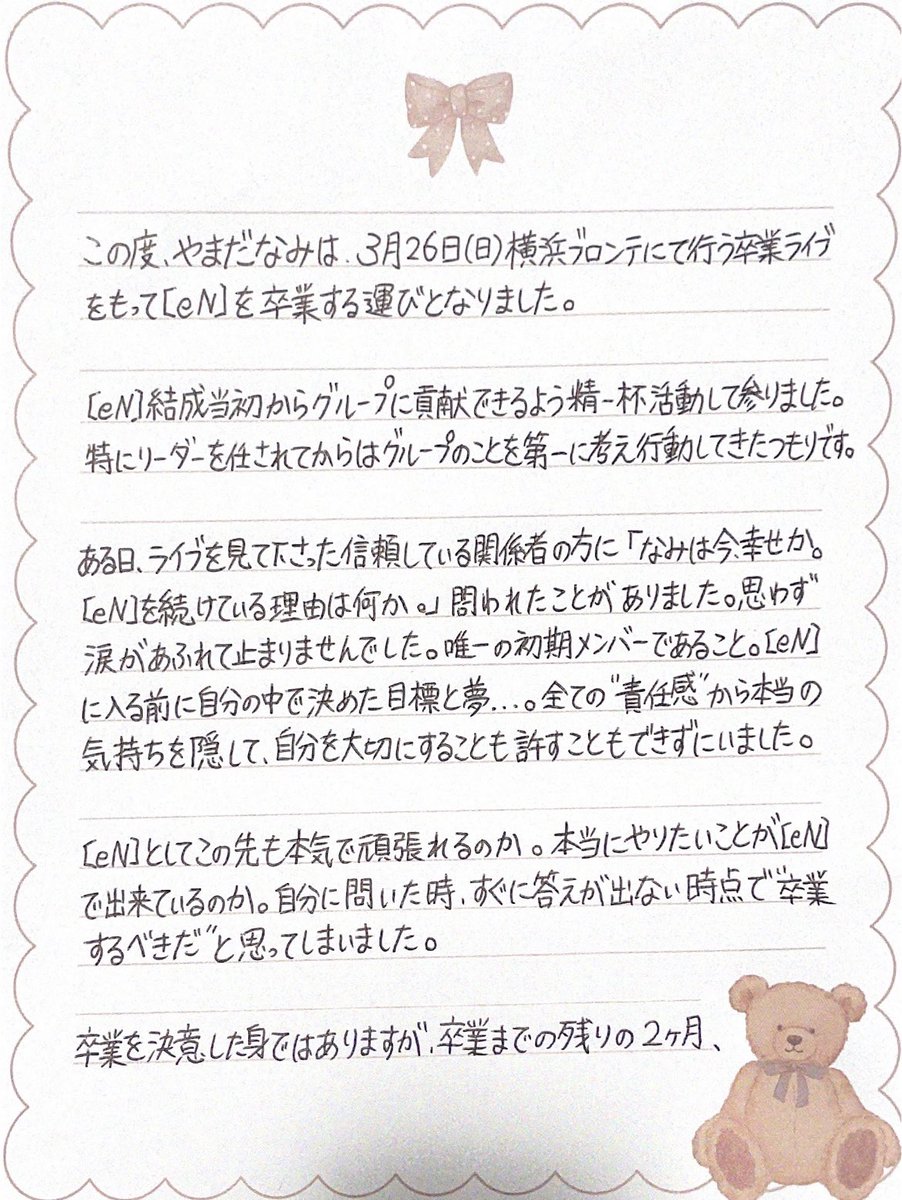 この度、やまだなみは、3月26日(日)横浜ブロンテにて行う卒業ライブ
をもって[eN]を卒業する運びとなりました。
[eN]結成当初からグループに貢献できるよう精一杯活動して参りました。
特にリーダーを任されてからはグループのことを第一に考え行動してきたつもりです。
ある日、ライブを見て下さった信頼している関係者の方に「なみは今、幸せか。
[eN]を続けている理由は何か。」問われたことがありました。思わず
涙があふれて止まりませんでした。唯一の初期メンバーであること。[eN]
に入る前に自分の中で決めた目標と夢...。全ての"責任感"から本当の
気持ちを隠して、自分を大切にすることも許すこともできずにいました。
[eN]としてこの先も本気で頑張れるのか。本当にやりたいことが[eN]
で出来ているのか。自分に問いた時、すぐに答えが出ない時点で"卒業
するべきだ"と思ってしまいました。
卒業を決意した身ではありますが、卒業までの残りの2ヶ月、